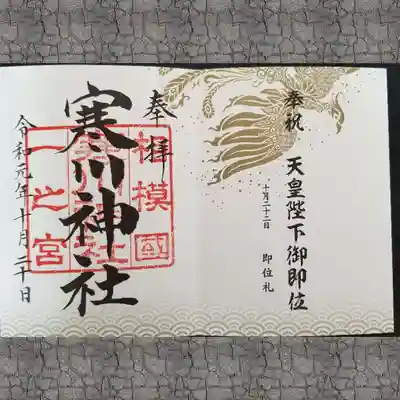 奉祝 天皇陛下御即位
十月二十二日 即位礼
奉拝
相模國
寒川神社
寒川神社
一之宮
令和元年十月二十日